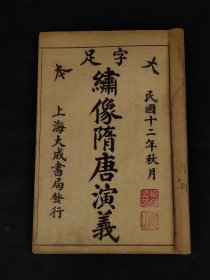 足字
民國十二年秋月
繡像隋唐演義
上海大成書局發行